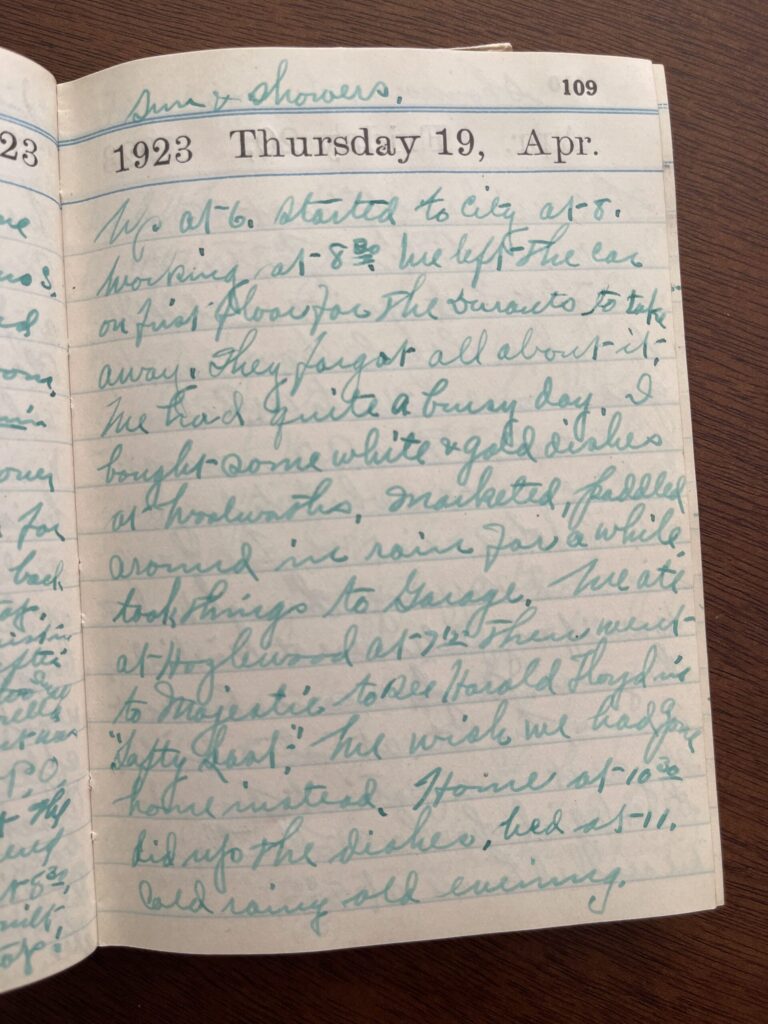 Sun & showers.
109
1923 Thursday 19, Apr.
Up at 6. Started to City at 8.
working at 8 30. We left the car
on first floor for the Durants to take
away. They forgot all about it.
We had quite a busy day. I
bought some white & gold dishes
at Woolworths. Marketed, paddled
around in rain for a while
took things to Garage. We ate
at Hazlewood at 7 15 then went
to Majestic to see Harold Lloyd in
"Safty Last". We wish we had gone
home instead. Home at 10 30
Did up the dishes, bed at 11.
Cold rainy old evening.
23
for
back
P.O.